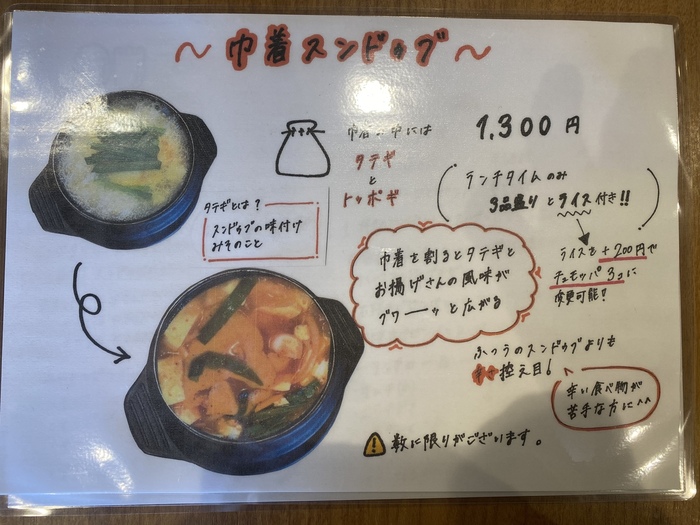 〜巾着スンドゥブ〜
巾着の中には
タテギ
と
トッポギ
1,300円
ランチタイムのみ
3品盛りとライス付き!!
タテギとは?
スンドゥブの味付け
みそのこと
ライスを+200円で
チュモッパ3コに
変更可能?
巾着を割るとタテギと
お揚げさんの風味が
グワーーッと広がる
ふつうのスンドゥブよりも
辛さ控え目!
辛い食べ物が
苦手な方に^^
⚠数に限りがございます。